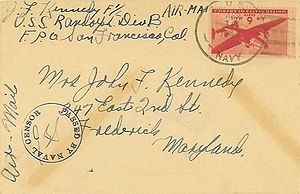 J. F. Kennedy F 1/c
U.S.S. Randolph Div B
F.P.O. San Francisco, Cal
AIR-MAIL
U.S.
NAVY
6¢
UNITED STATES OF AMERICA
Mrs John F. Kennedy
247 East 2nd St.
Frederick
Maryland.
Air-Mail
PASSED BY NAVAL CENSOR